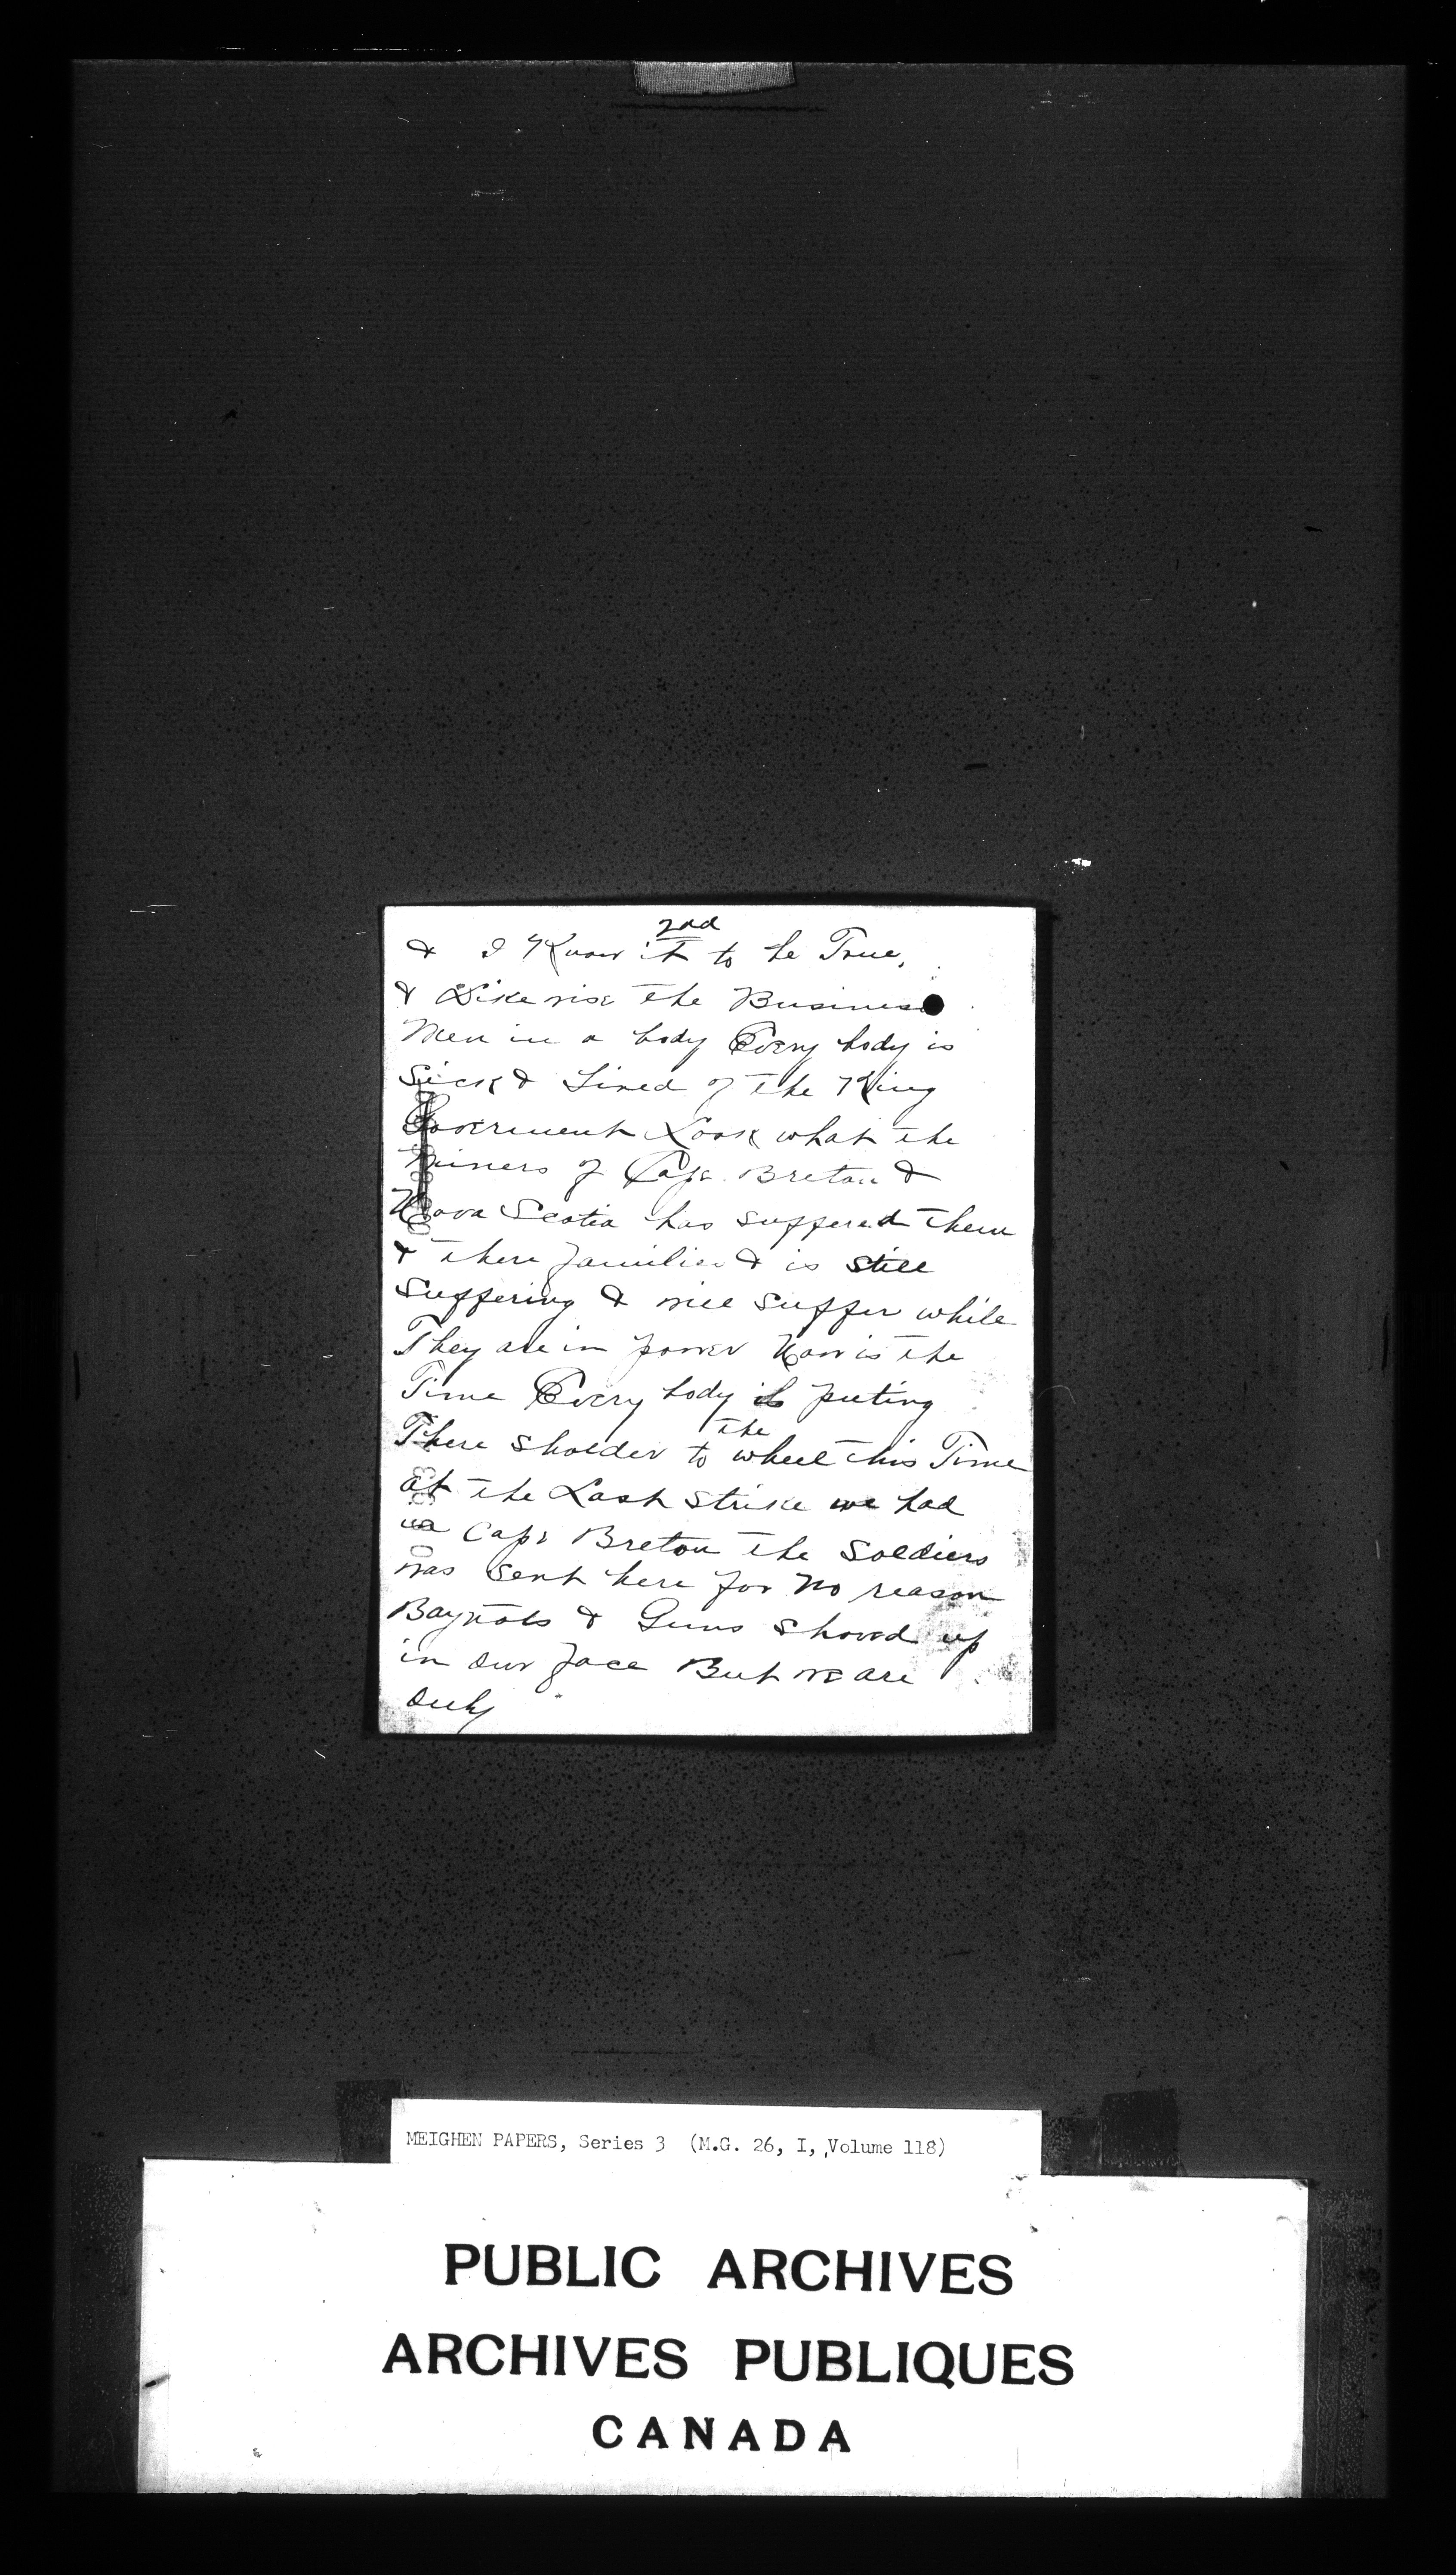 2nd
& I Know it to be True,
& Likewise the Business
Men in a body Every body is
Sick & Tired of the King
Goverment Look what the
Miners of Cape Breton &
Nova Scotia has suffered them
& there families & is still
Suffering & will suffer while
They are in power Now is the
Time Every body is puting
There sholder to the wheel this Time
at the Last strike we had
in Cape Breton the Soldiers
was sent here for no reason
Baynots & Guns shoved up
in our face But we are
only
MEIGHEN PAPERS, Series 3 (M.G. 26, I, Volume 118)
PUBLIC ARCHIVES
ARCHIVES PUBLIQUES
CANADA